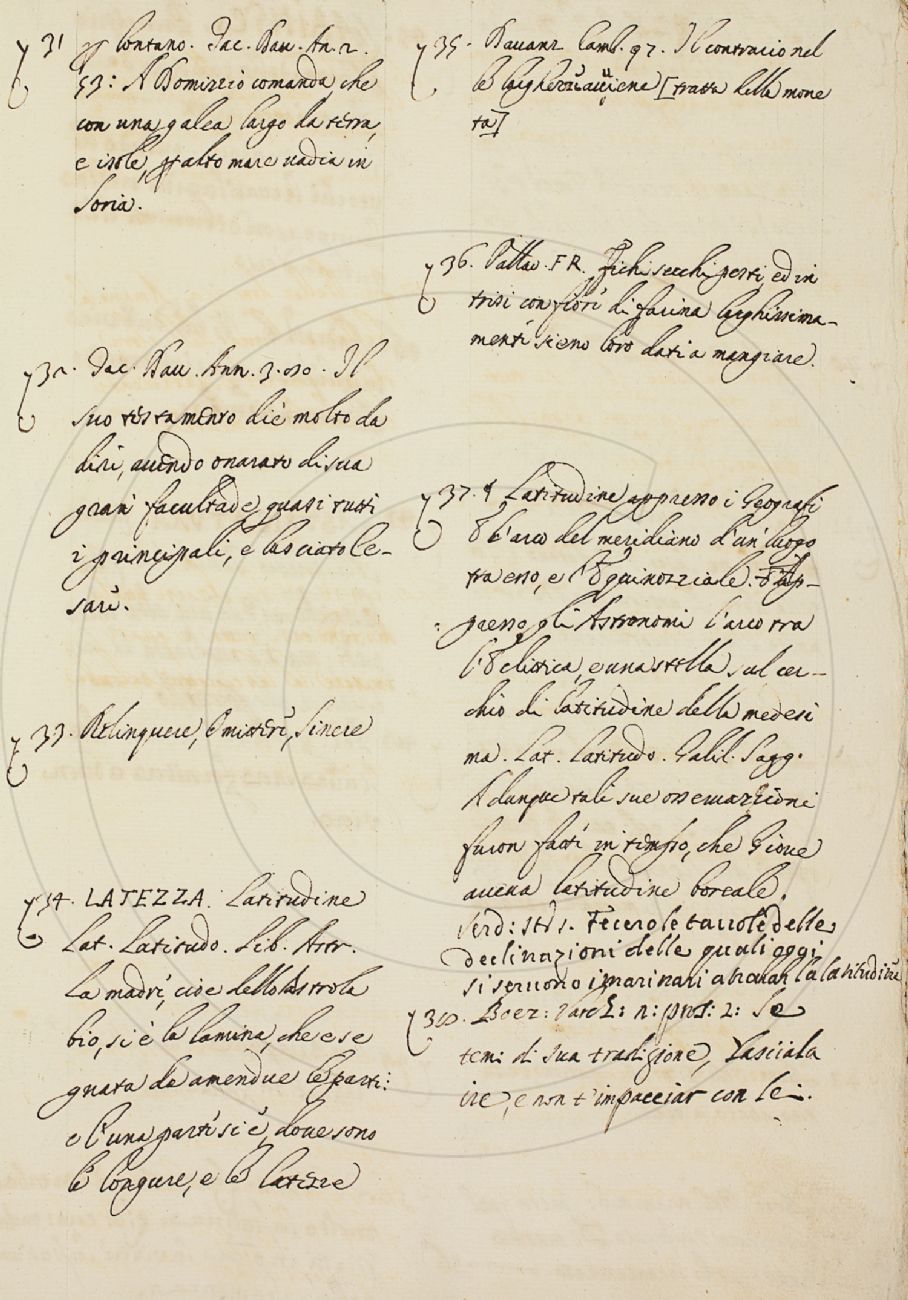 31 p lontano. Tac. Dav. An. 2.
53: A Domizzio comanda che
con una galea largo da terra,
e isole, p alto mare vadia in
Soria.
32. Tac. Dav. Ann. 3. 020. Il
suo testamento diè molto da
dire, avendo onorato di sua
gran facultade quasi tutti
i principali, e lasciato Ce-
sare.
33. Relinquere, Omittere, Sinere
34. LATEZZA. Latitudine
Lat. Latitudo. Lib. Astr.
La madre, cioè dello Astrola
bio, si è la lamina, che è se
gnata da amendue le parti:
e l'una parte si è, dove sono
le longure, e le latezze
35. Davanz. Camb. 97. Il contracio nel
le larghezze avviene [tratta delle mone
te]
36. Pallad. FR. Fichi secchi pesti, ed in
trisi con fiore di farina larghissima-
mente sieno loro dati a mangiare.
37. § Latitudine appresso i Geografi
È l'arco del meridiano d'un luogo
tra esso, e l'Equinozziale. E Ap-
presso gli Astronomi l'arco tra
l'Eclittica, e una stella sul cer-
chio di latitudine della medesi
ma. Lat. Latitudo. Galil. Sagg.
Adunque tali sue osservazzioni
furon fatte in tempo, che Giove
aveva latitudine boreale.
Serd: St: 1. Fecero le tavole delle
declinazioni delle quali oggi
si servono i marinari a trovar la latitudine
Boez: Varc: 2: n: pros: 2: Se
temi di sua tradigione, lasciala
ire, e non t'impacciar con lei.